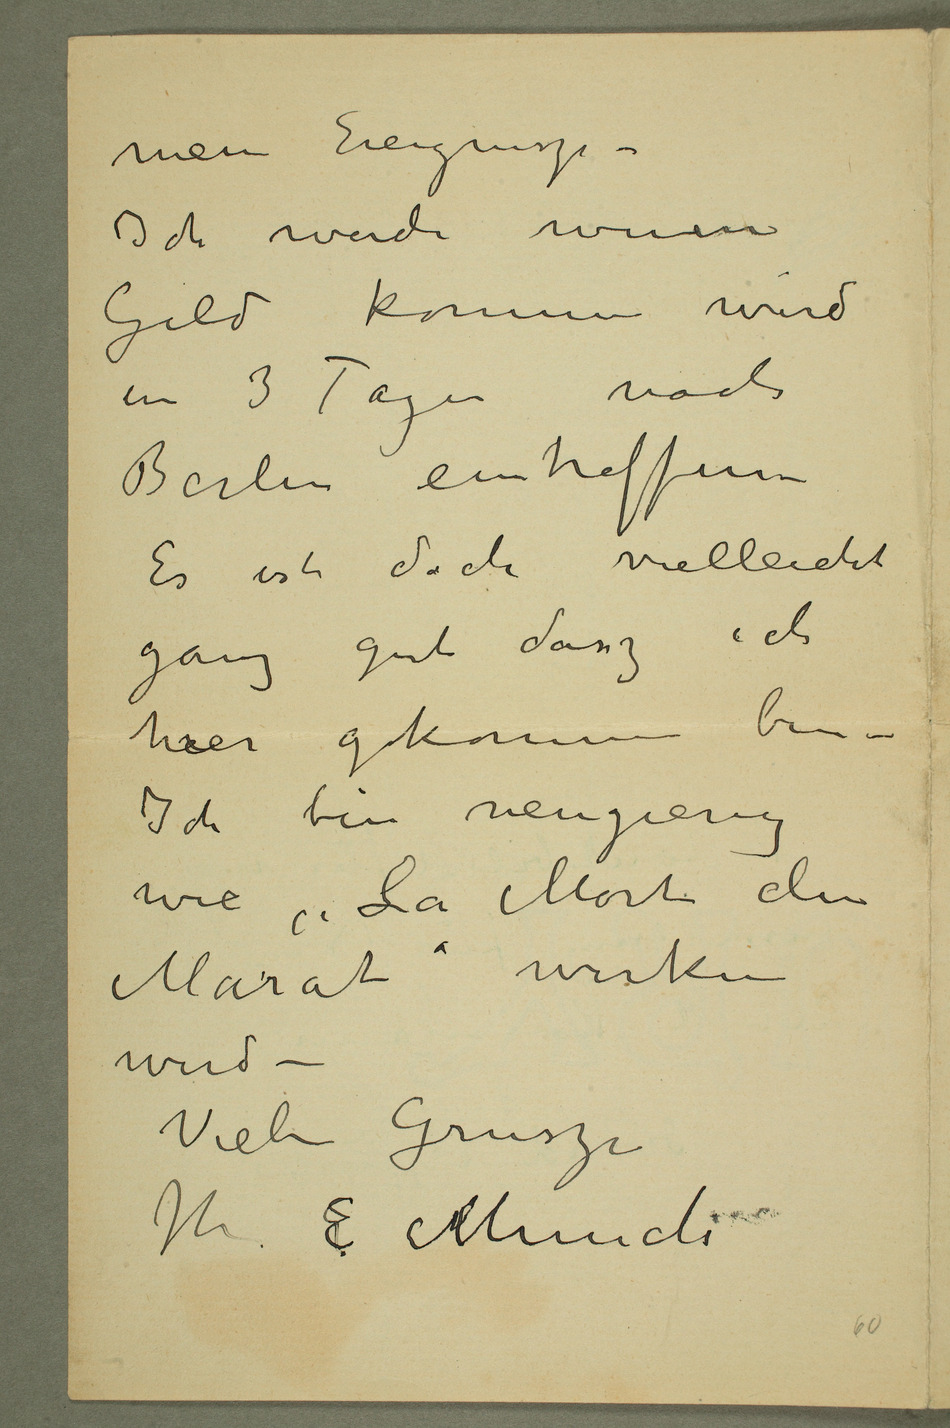 mein Ereignisze –
Ich werde wenn
Geld kommen wird
in 3 Tagen nach
Berlin eintreffen
Es ist doch vielleicht
ganz gut dasz ich
hier gekommen bin –
Ich bin neugierig
wie „La Mort den
Marat“ wirken
wird –
Viele Grusze
Ihr E Munch
60